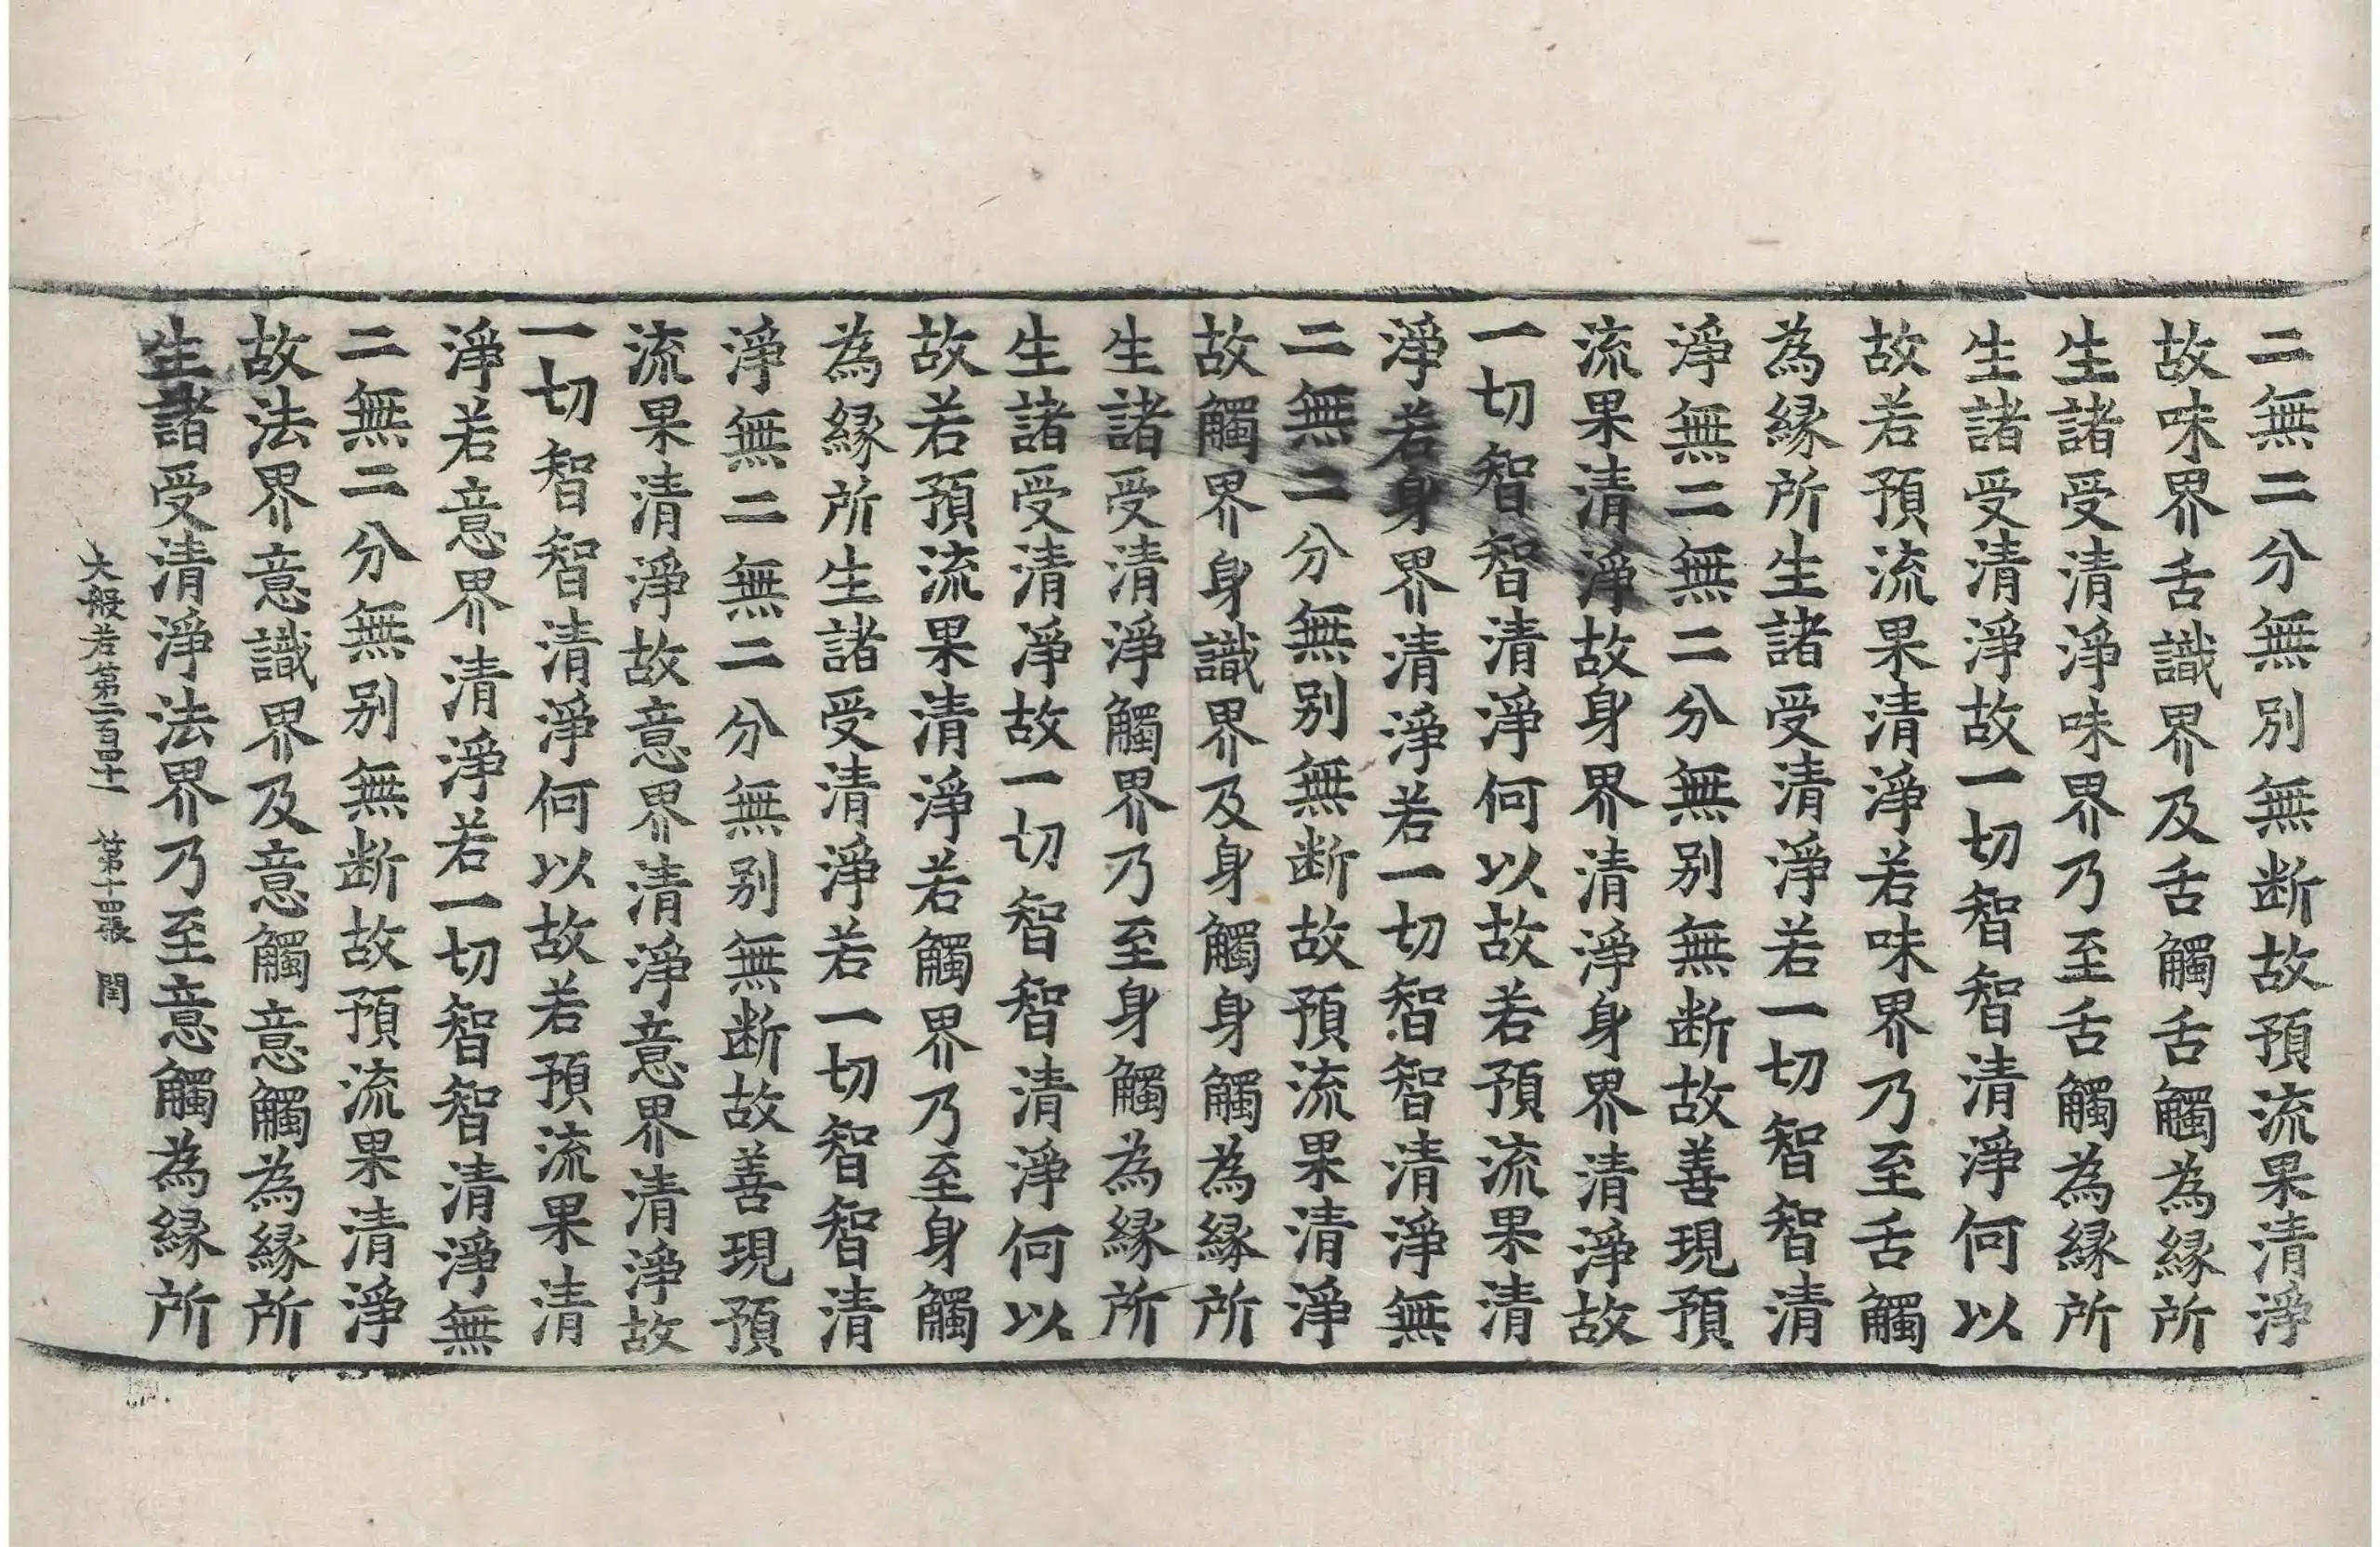 二無二分無別無断故預流果清淨
故味界舌識界及舌觸舌觸為縁所
生諸受清淨味界乃至舌觸為縁所
生諸受清淨故一切智智清淨何以
故若預流果清淨若味界乃至舌觸
為縁所生諸受清淨若一切智智清
淨無二無二分無別無断故善現預
流果清淨故身界清淨身界清淨故
一切智智清淨何以故若預流果清
淨若身界清淨若一切智智清淨無
二無二分無別無断故預流果清淨
故觸界身識界及身觸身觸為縁所
生諸受清淨觸界乃至身觸為縁所
生諸受清淨故一切智智清淨何以
故若預流果清淨若觸界乃至身觸
為縁所生諸受清淨若一切智智清
淨無二無二分無別無断故善現預
流果清淨故意界清淨意界清淨故
一切智智清淨何以故若預流果清
淨若意界清淨若一切智智清淨無
二無二分無別無断故預流果清淨
故法界意識界及意觸意觸為縁所
生諸受清淨法界乃至意觸為縁所
大般若第二百四十一 第十四張 閏